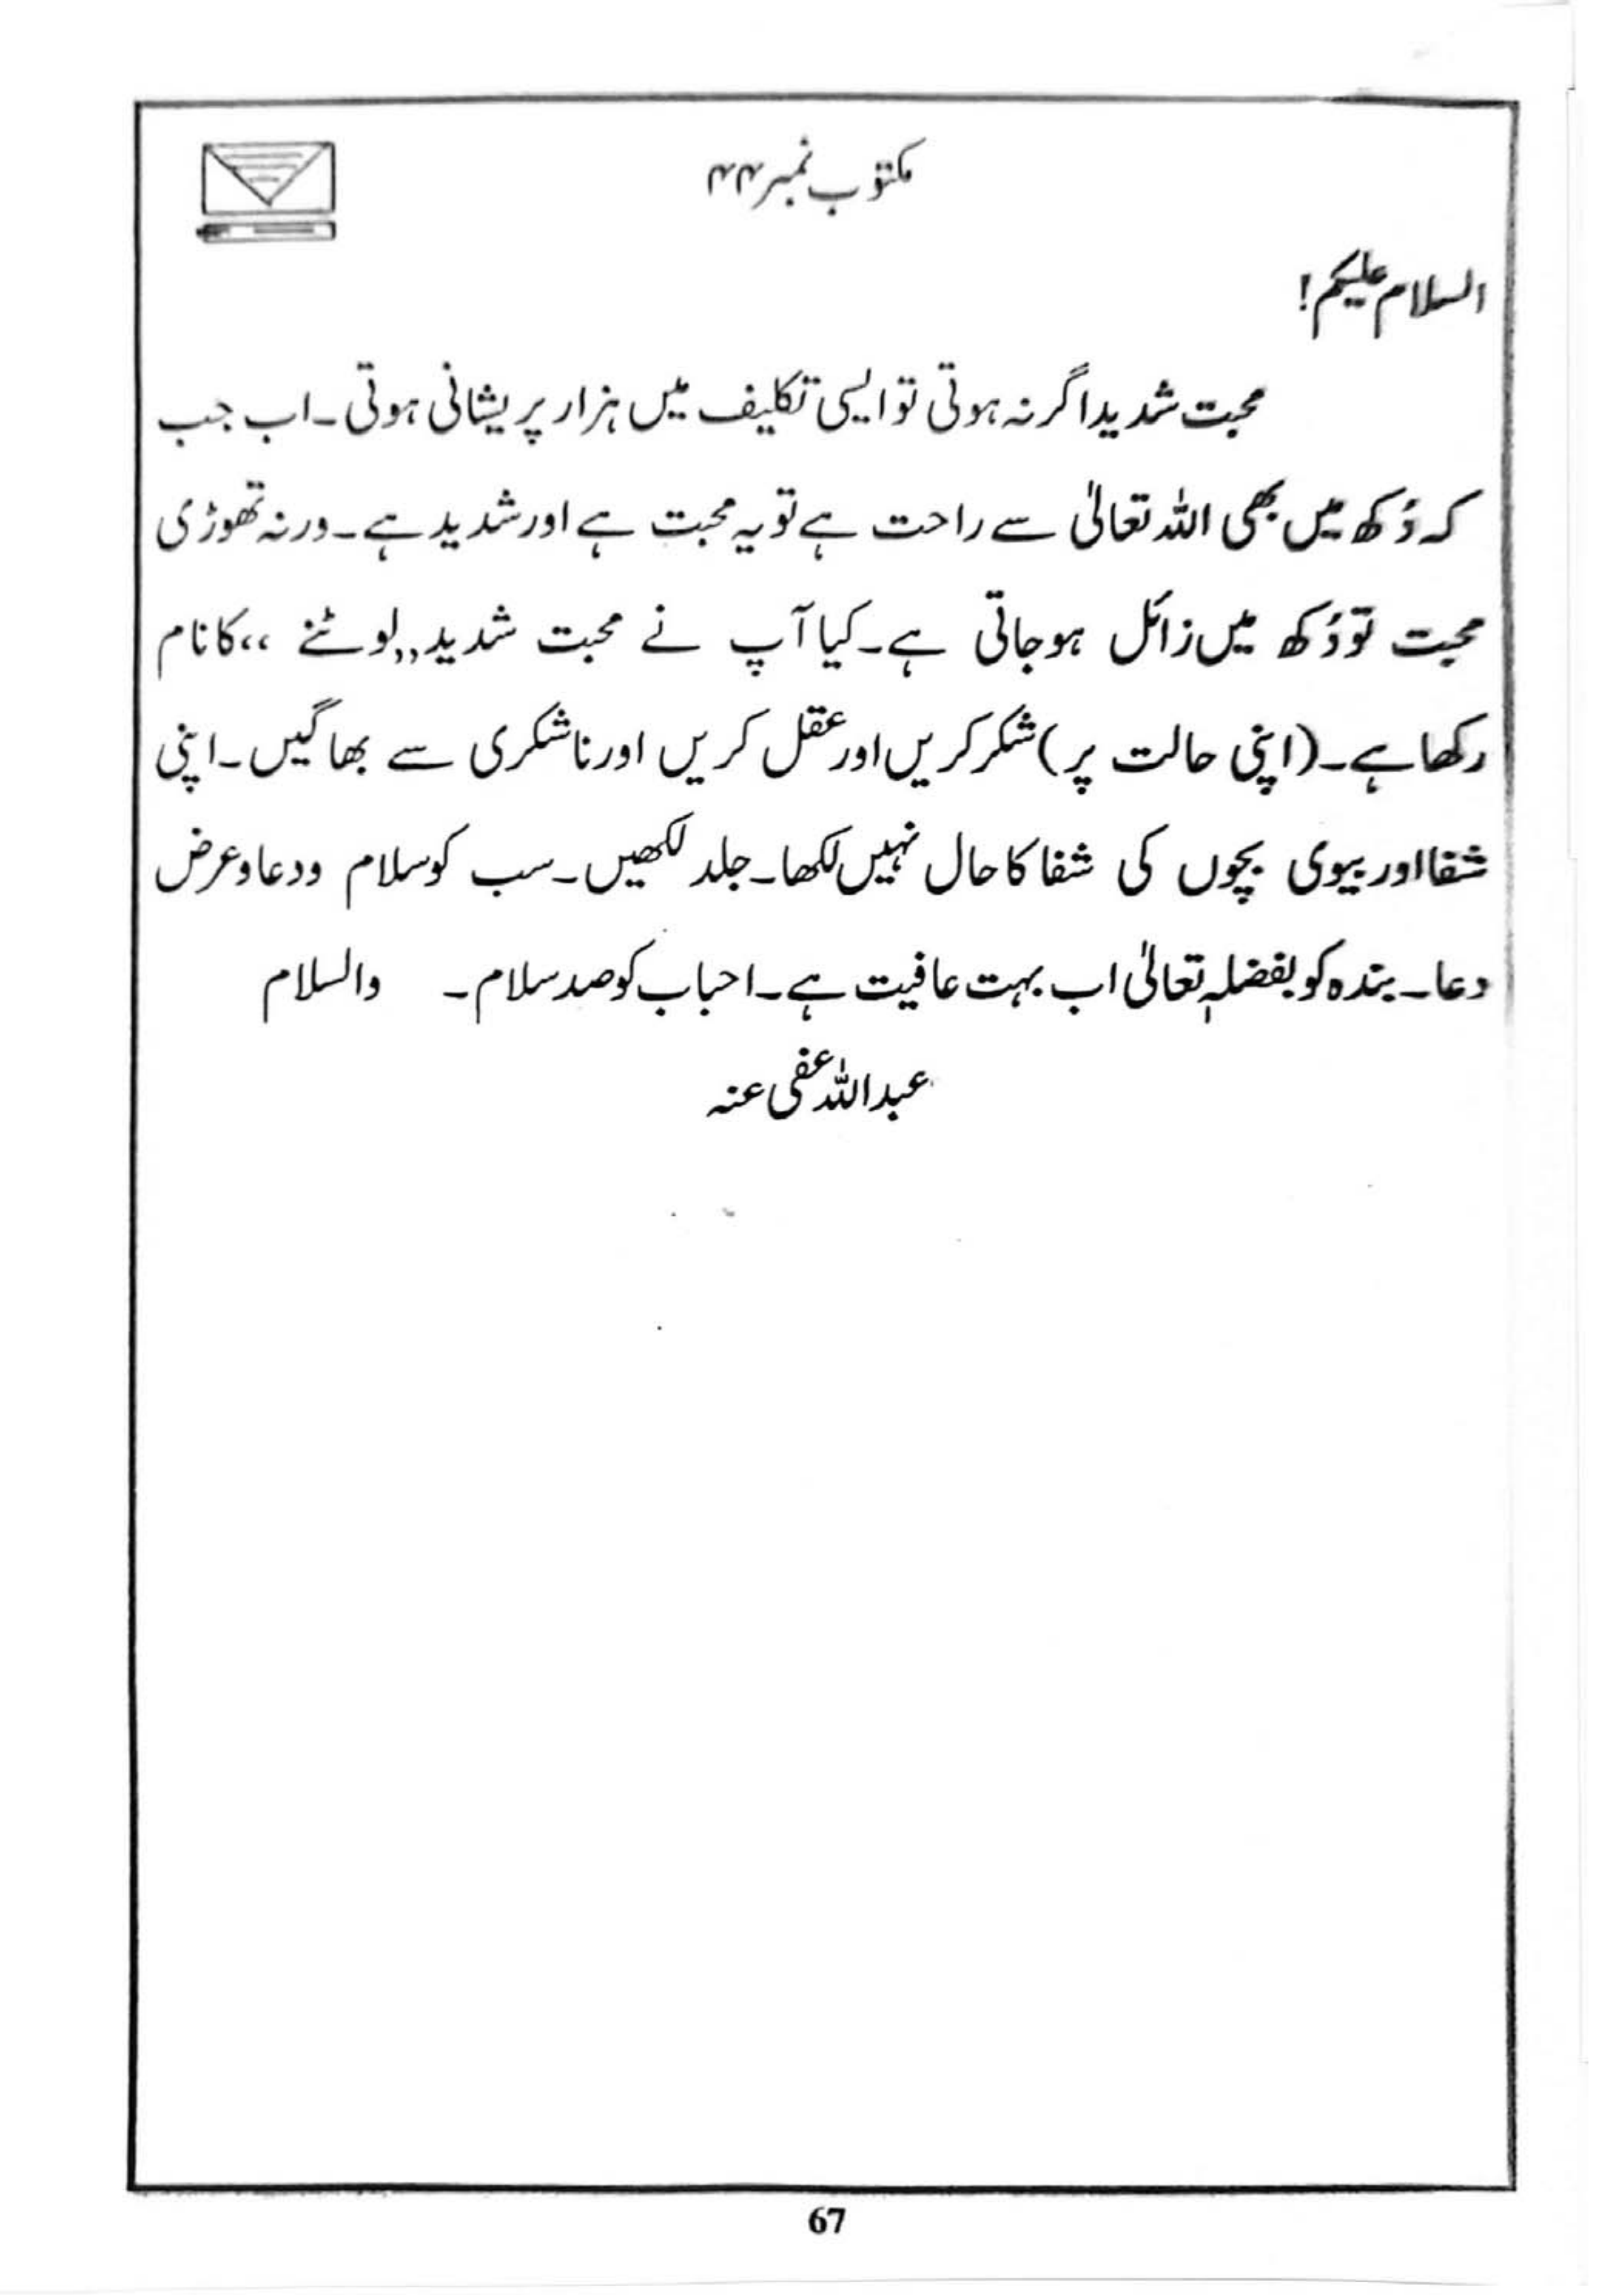 مکتوب نمبر ۴۴
السلام علیکم!
محبت شدید اگر نہ ہوتی تو ایسی تکلیف میں ہزار پریشانی ہوتی۔ اب جب
کہ دُکھ میں بھی اللہ تعالیٰ سے راحت ہے تو یہ محبت ہے اور شدید ہے۔ ورنہ تھوڑی
محبت تو دُکھ میں زائل ہو جاتی ہے۔ کیا آپ نے محبت شدید ,,لوٹنے ،، کا نام
رکھا ہے۔ (اپنی حالت پر) شکر کریں اور عقل کریں اور ناشکری سے بھاگیں۔ اپنی
شفا اور بیوی بچوں کی شفا کا حال نہیں لکھا۔ جلد لکھیں۔ سب کو سلام ودعا وعرض
دعا۔ بندہ کو بفضلہٖ تعالیٰ اب بہت عافیت ہے۔ احباب کو صد سلام۔ والسلام
عبداللہ عفی عنہ
67